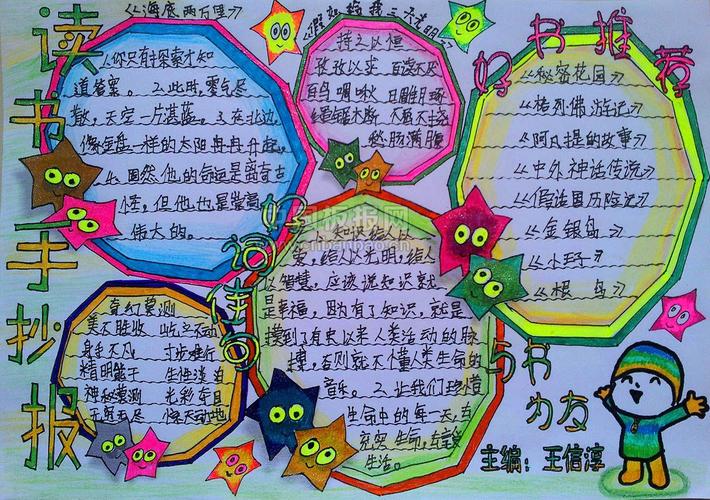 读书手抄报
《海底两万里》
1.你只有探索才知
道答案。2.此时,雾气尽
散,天空一片湛蓝。3.在北边,
像金盘一样的太阳冉冉升起。
4.固然,他的命运是离奇古
怪,但他也是崇高、
伟大的。
《假如给我三天光明》
持之以恒
孜孜以求 百读不厌
百鸟啁啾 日雕月琢
绵延不断 不屈不挠
愁肠满腹
好书推荐
《秘密花园》
《格列佛游记》
《阿凡提的故事》
《中外神话传说》
《假话国历险记》
《金银岛》
《小王子》
《根鸟》
好词佳句
奇幻莫测
美不胜收 屹立不动
身手不凡 寸步难行
精明能干 生性淡泊
神秘莫测 光彩夺目
无穷无尽 惊天动地
1.知识给人以
爱,给人以光明,给人
以智慧,应该说知识就
是幸福,因为有了知识,就是
摸到了有史以来人类活动的脉
搏,否则就不懂人类生命的
音乐。2.让我们珍惜
生命中的每一天,去
充实生命,去享受
生活。
与书
为友
主编:王信淳